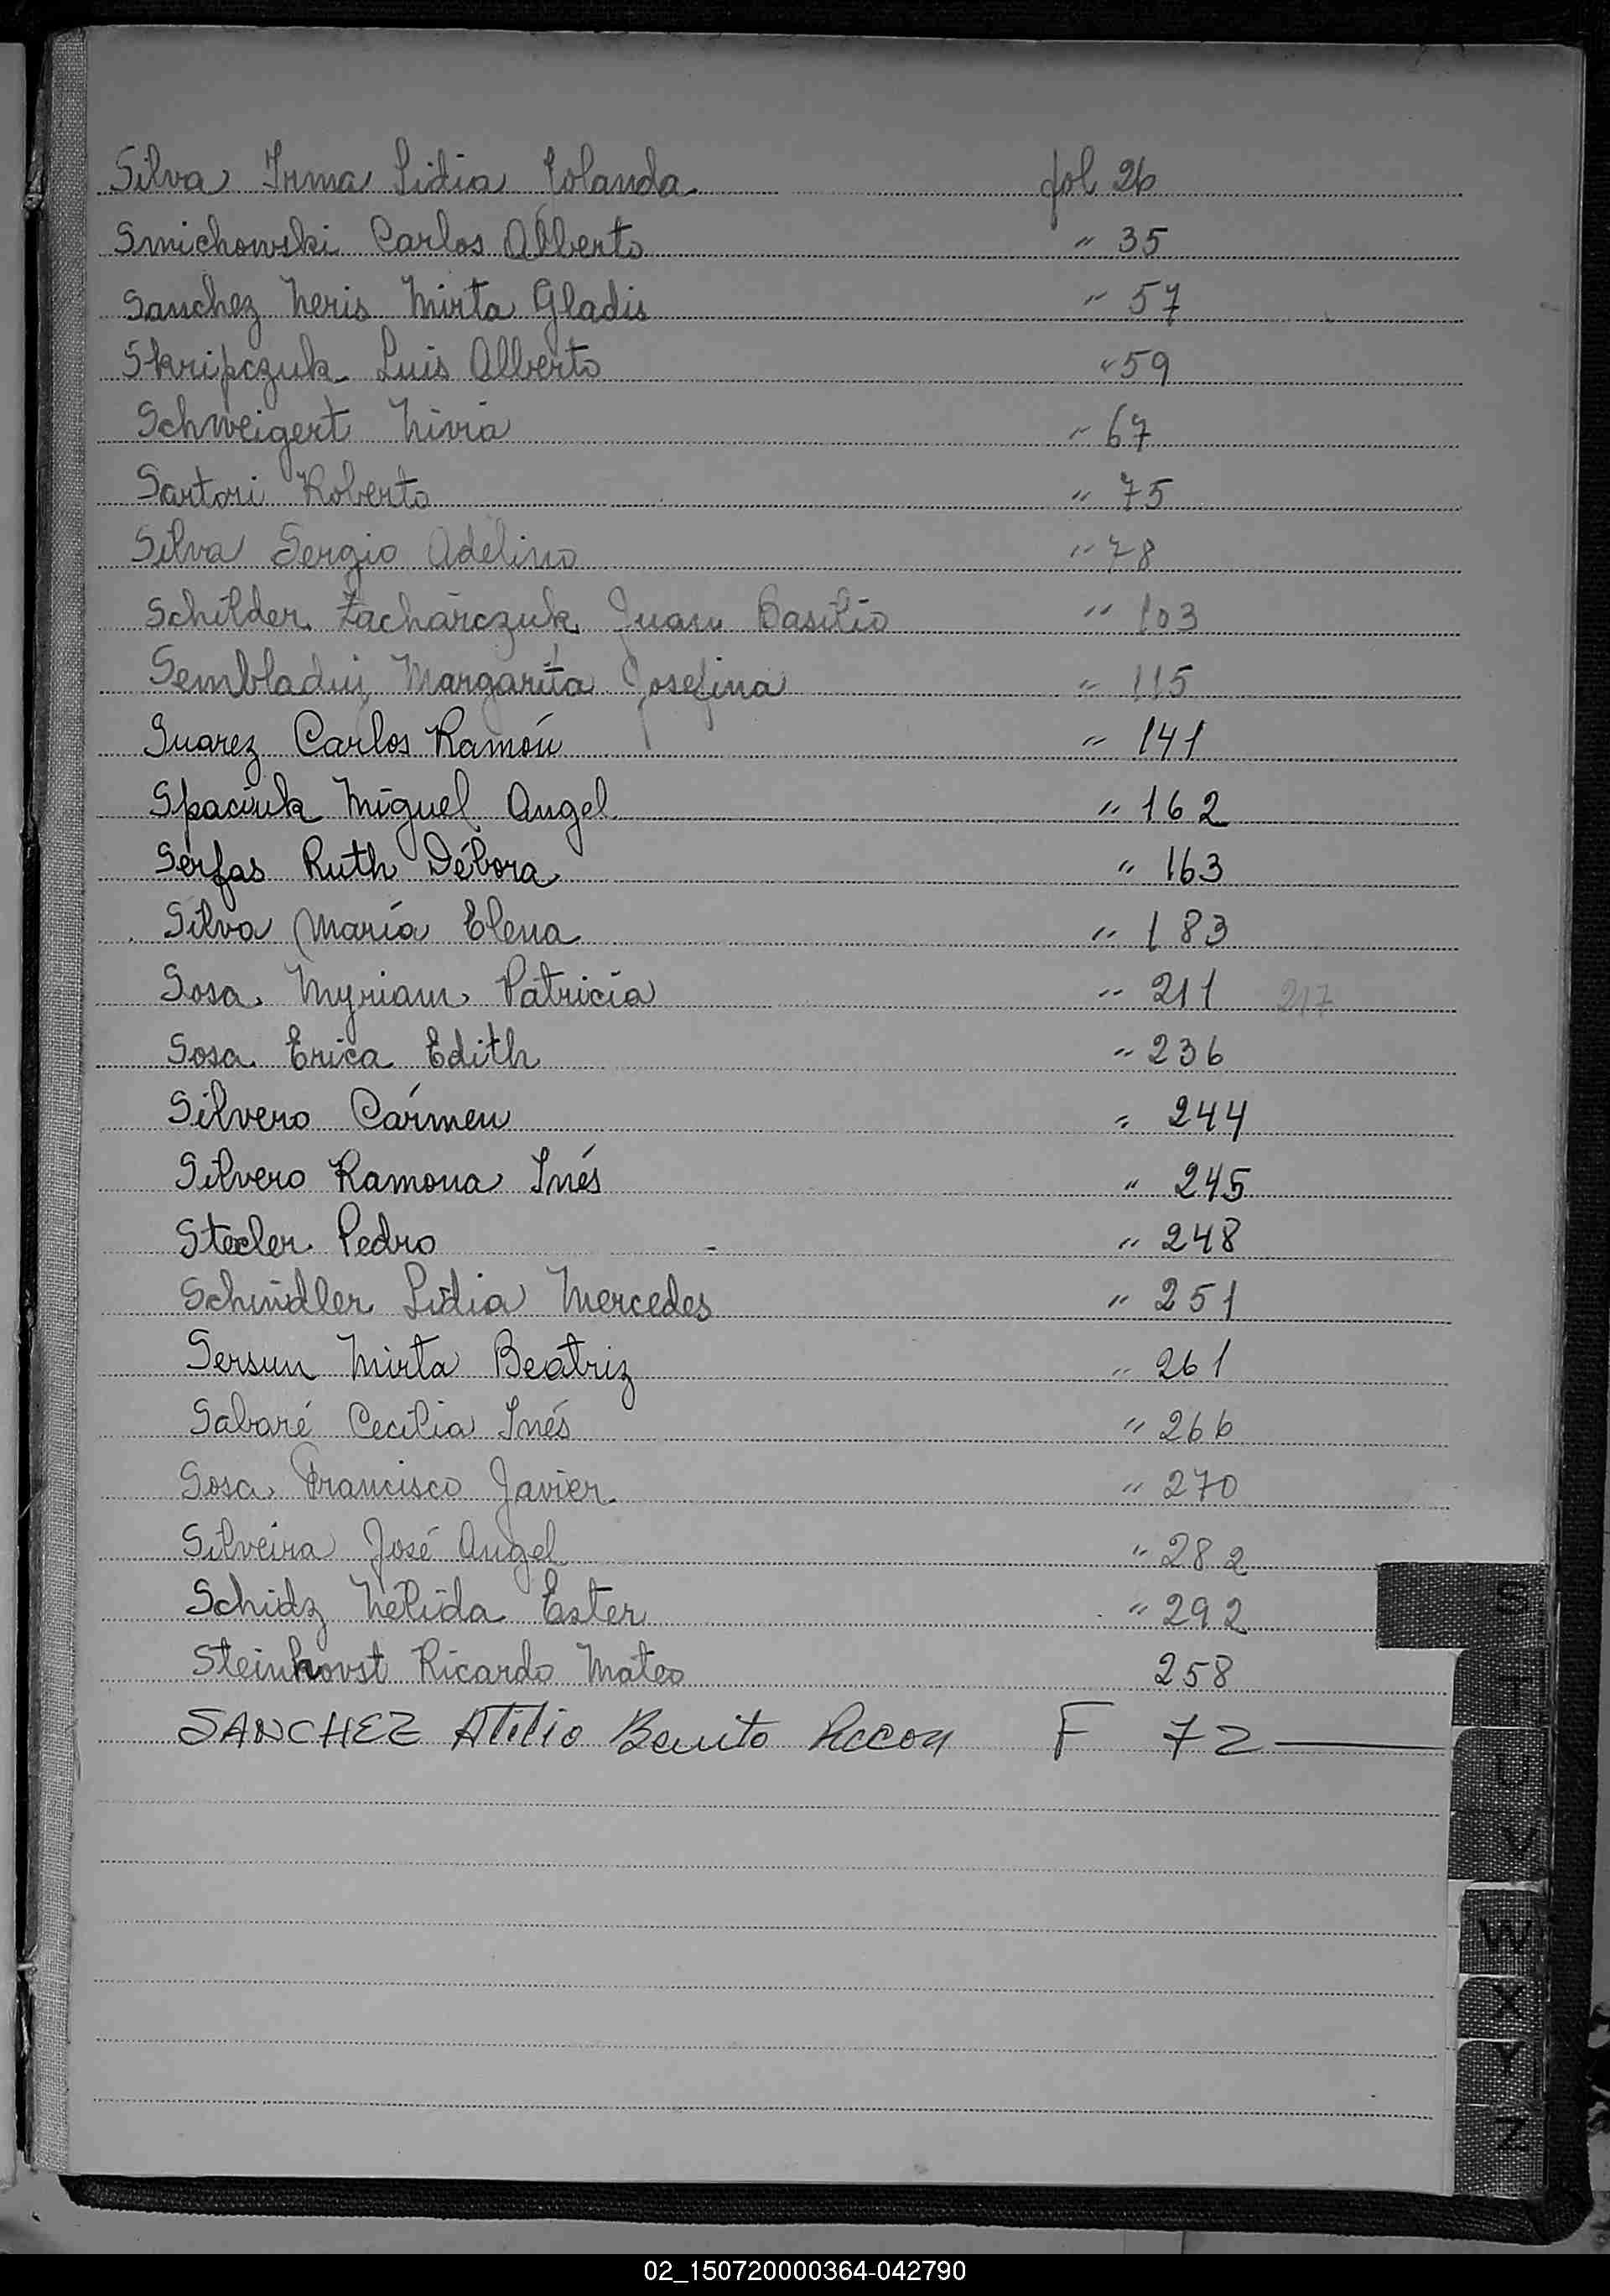 Silva Irma Lidia Iolanda fol 26
Smichowski Carlos Alberto " 35
Sanchez Neris Mirta Gladis " 57
Skripczuk Luis Alberto " 59
Schweigert Nivia " 67
Sartori Roberto " 75
Silva Sergio Adelino " 78
Schilder Zacharczuk Juan Basilio " 103
Margarita Josefina " 115
Suarez Carlos Ramón " 141
Spaciuk Miguel Angel " 162
Serfas Ruth Débora " 163
Silva María Elena " 183
Sosa Myriam Patricia " 211 217
Sosa Erica Edith " 236
Silvero Cármen " 244
Silvero Ramona Inés " 245
Stecler Pedro " 248
Schindler Lidia Mercedes " 251
Sersun Mirta Beatriz " 261
Sabaré Cecilia Inés " 266
Sosa Francisco Javier " 270
Silveira José Angel " 282
Schidz Nélida Ester " 292
Steinhovst Ricardo Mateo 258
SANCHEZ Atilio Benito F 72
S
T
U
V
W
X
Y
Z
02_150720000364-042790